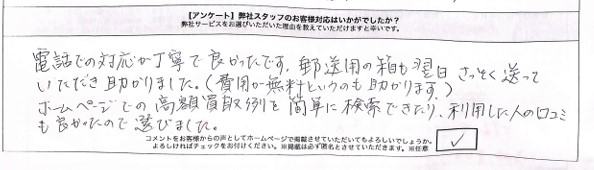 【アンケート】弊社スタッフのお客様対応はいかがでしたか?
弊社サービスをお選びいただいた理由を教えていただけますと幸いです。
電話での対応が丁寧で良かったです。郵送用の箱も翌日 さっそく送って
いただき助かりました。(費用が無料というのも助かります)
ホームページでの高額買取例を簡単に検索できたり、利用した人の口コミ
も良かったので選びました。
コメントをお客様からの声としてホームページで掲載させていただいてもよろしいでしょうか。
よろしければチェックをお付けください。※掲載は必ず匿名とさせていただきます。※任意